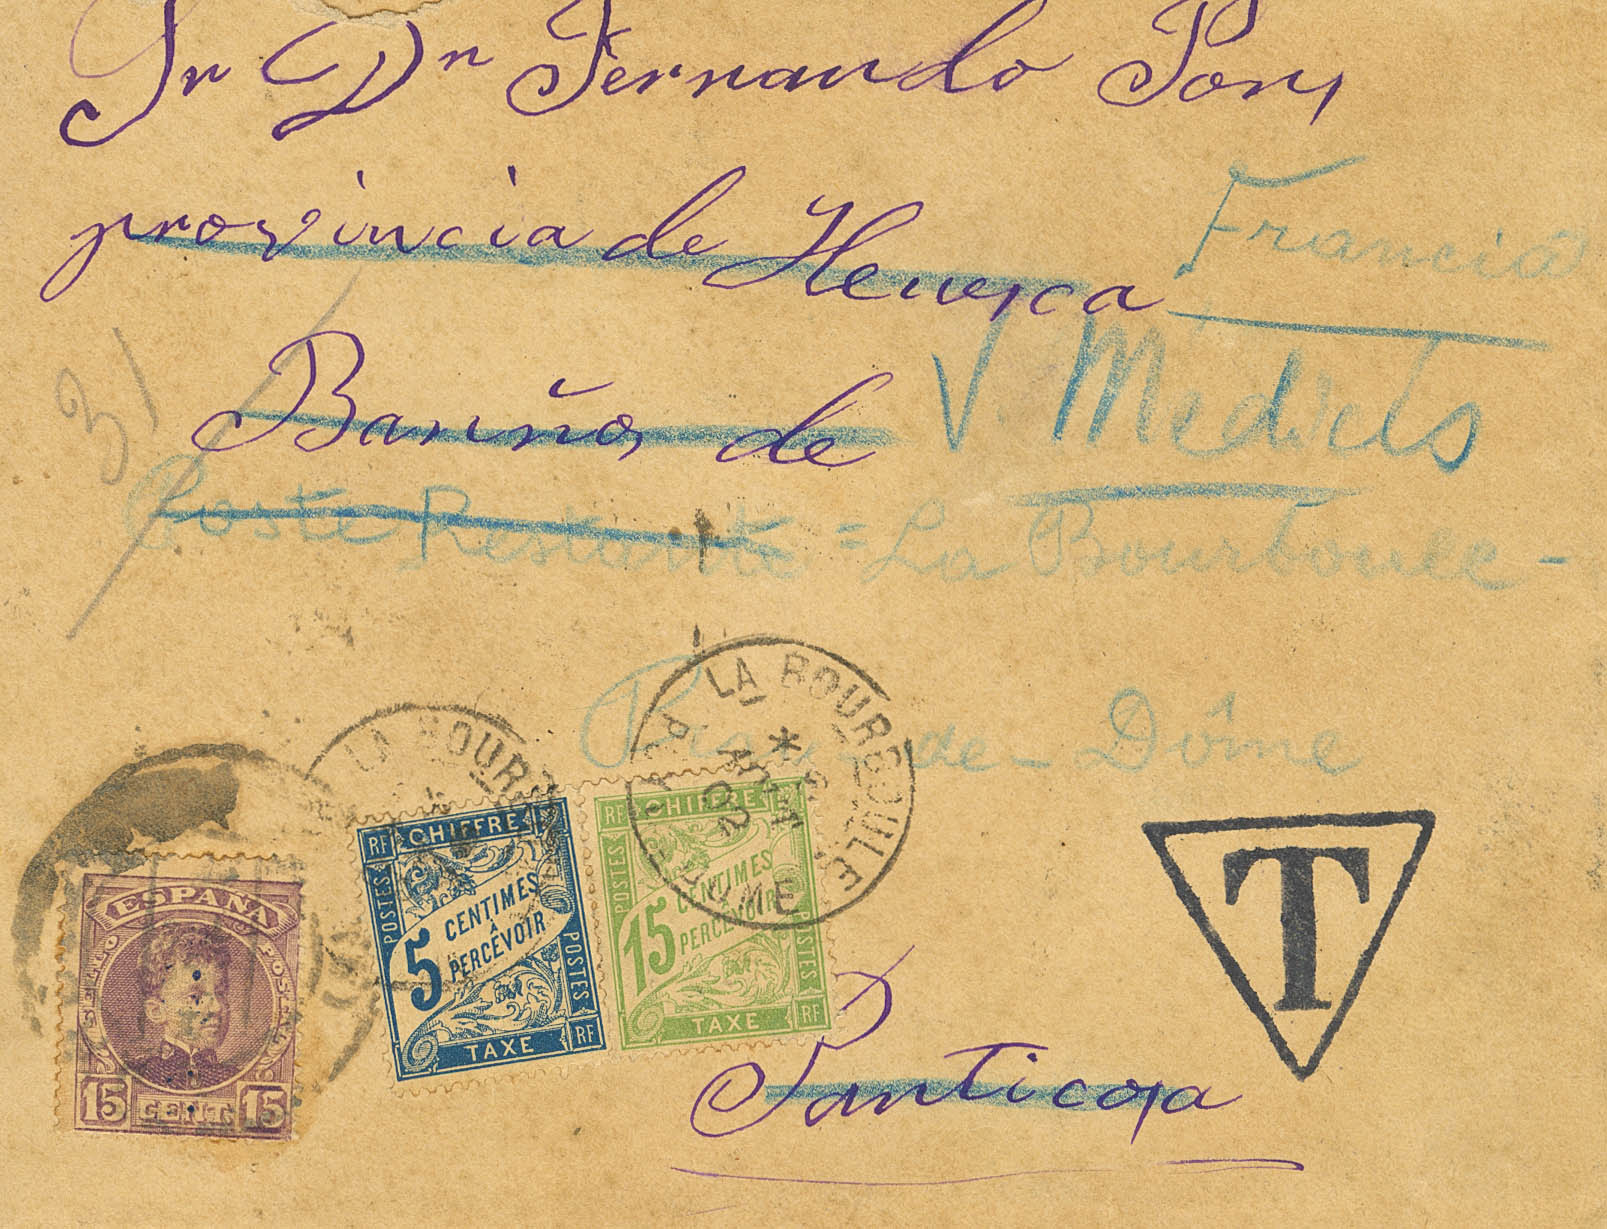 Sr Dn Fernando Pons
provincia de Huesca
Francia
Baños de
V. Médicis
31
Poste Restante = La Bourboule -
Puy-de-Dôme
LA BOURBOULE
PUY DE DOME
* AOUT 02
LA BOURB
ESPAÑA
SELLO POSTAL
15 CENT. 15
RF CHIFFRE
POSTES
5 CENTIMES
A
PERCEVOIR
POSTES
TAXE RF
RF CHIFFRE
POSTES
15 CENTIMES
PERCEVOIR
POSTES
TAXE RF
T
Panticosa